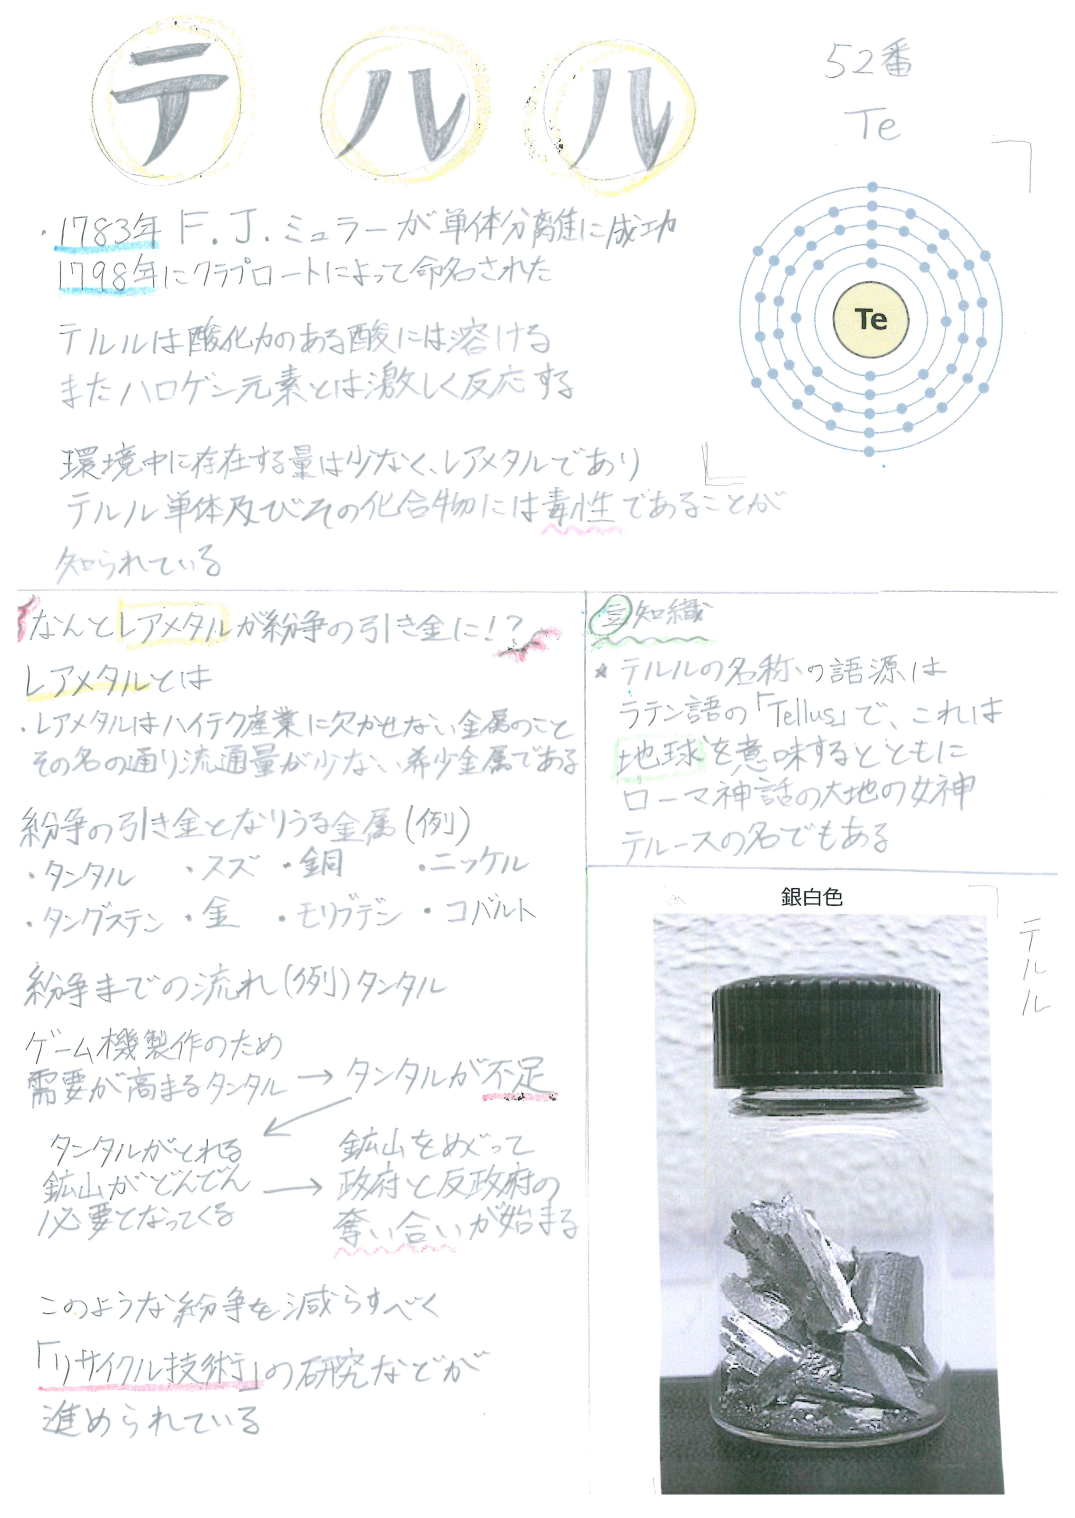 テルル
52番
Te
・1783年 F.J.ミュラーが単体分離に成功
1798年にクラプロートによって命名された
テルルは酸化力のある酸には溶ける
またハロゲン元素とは激しく反応する
Te
環境中に存在する量は少なく、レアメタルであり
テルル単体及びその化合物には毒性であることが
知られている
なんとレアメタルが紛争の引き金に!?
レアメタルとは
・レアメタルはハイテク産業に欠かせない金属のこと
その名の通り流通量が少ない希少金属である
紛争の引き金となりうる金属(例)
・タンタル ・スズ ・銅 ・ニッケル
・タングステン ・金 ・モリブデン ・コバルト
紛争までの流れ(例)タンタル
ゲーム機製作のため
需要が高まるタンタル → タンタルが不足
タンタルがとれる
鉱山がどんどん
必要となってくる
→
鉱山をめぐって
政府と反政府の
奪い合いが始まる
このような紛争を減らすべく
「リサイクル技術」の研究などが
進められている
豆知識
★テルルの名称の語源は
ラテン語の「Tellus」で、これは
地球を意味するとともに
ローマ神話の大地の女神
テルースの名でもある
銀白色
テルル